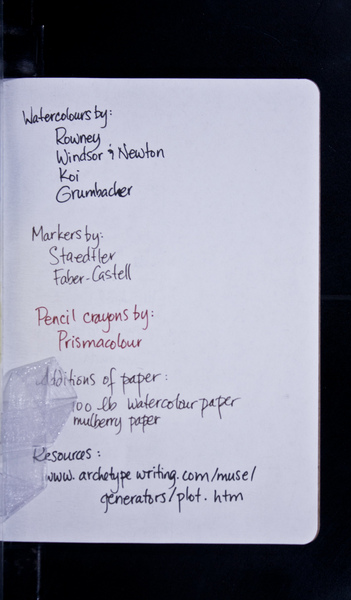 Watercolours by:
Rowney
Windsor & Newton
Koi
Grumbacher
Markers by:
Staedtler
Faber-Castell
Pencil crayons by:
Prismacolour
Additions of paper:
100 lb watercolour paper
mulberry paper
Resources:
www.archetypewriting.com/muse/
generators/plot.htm